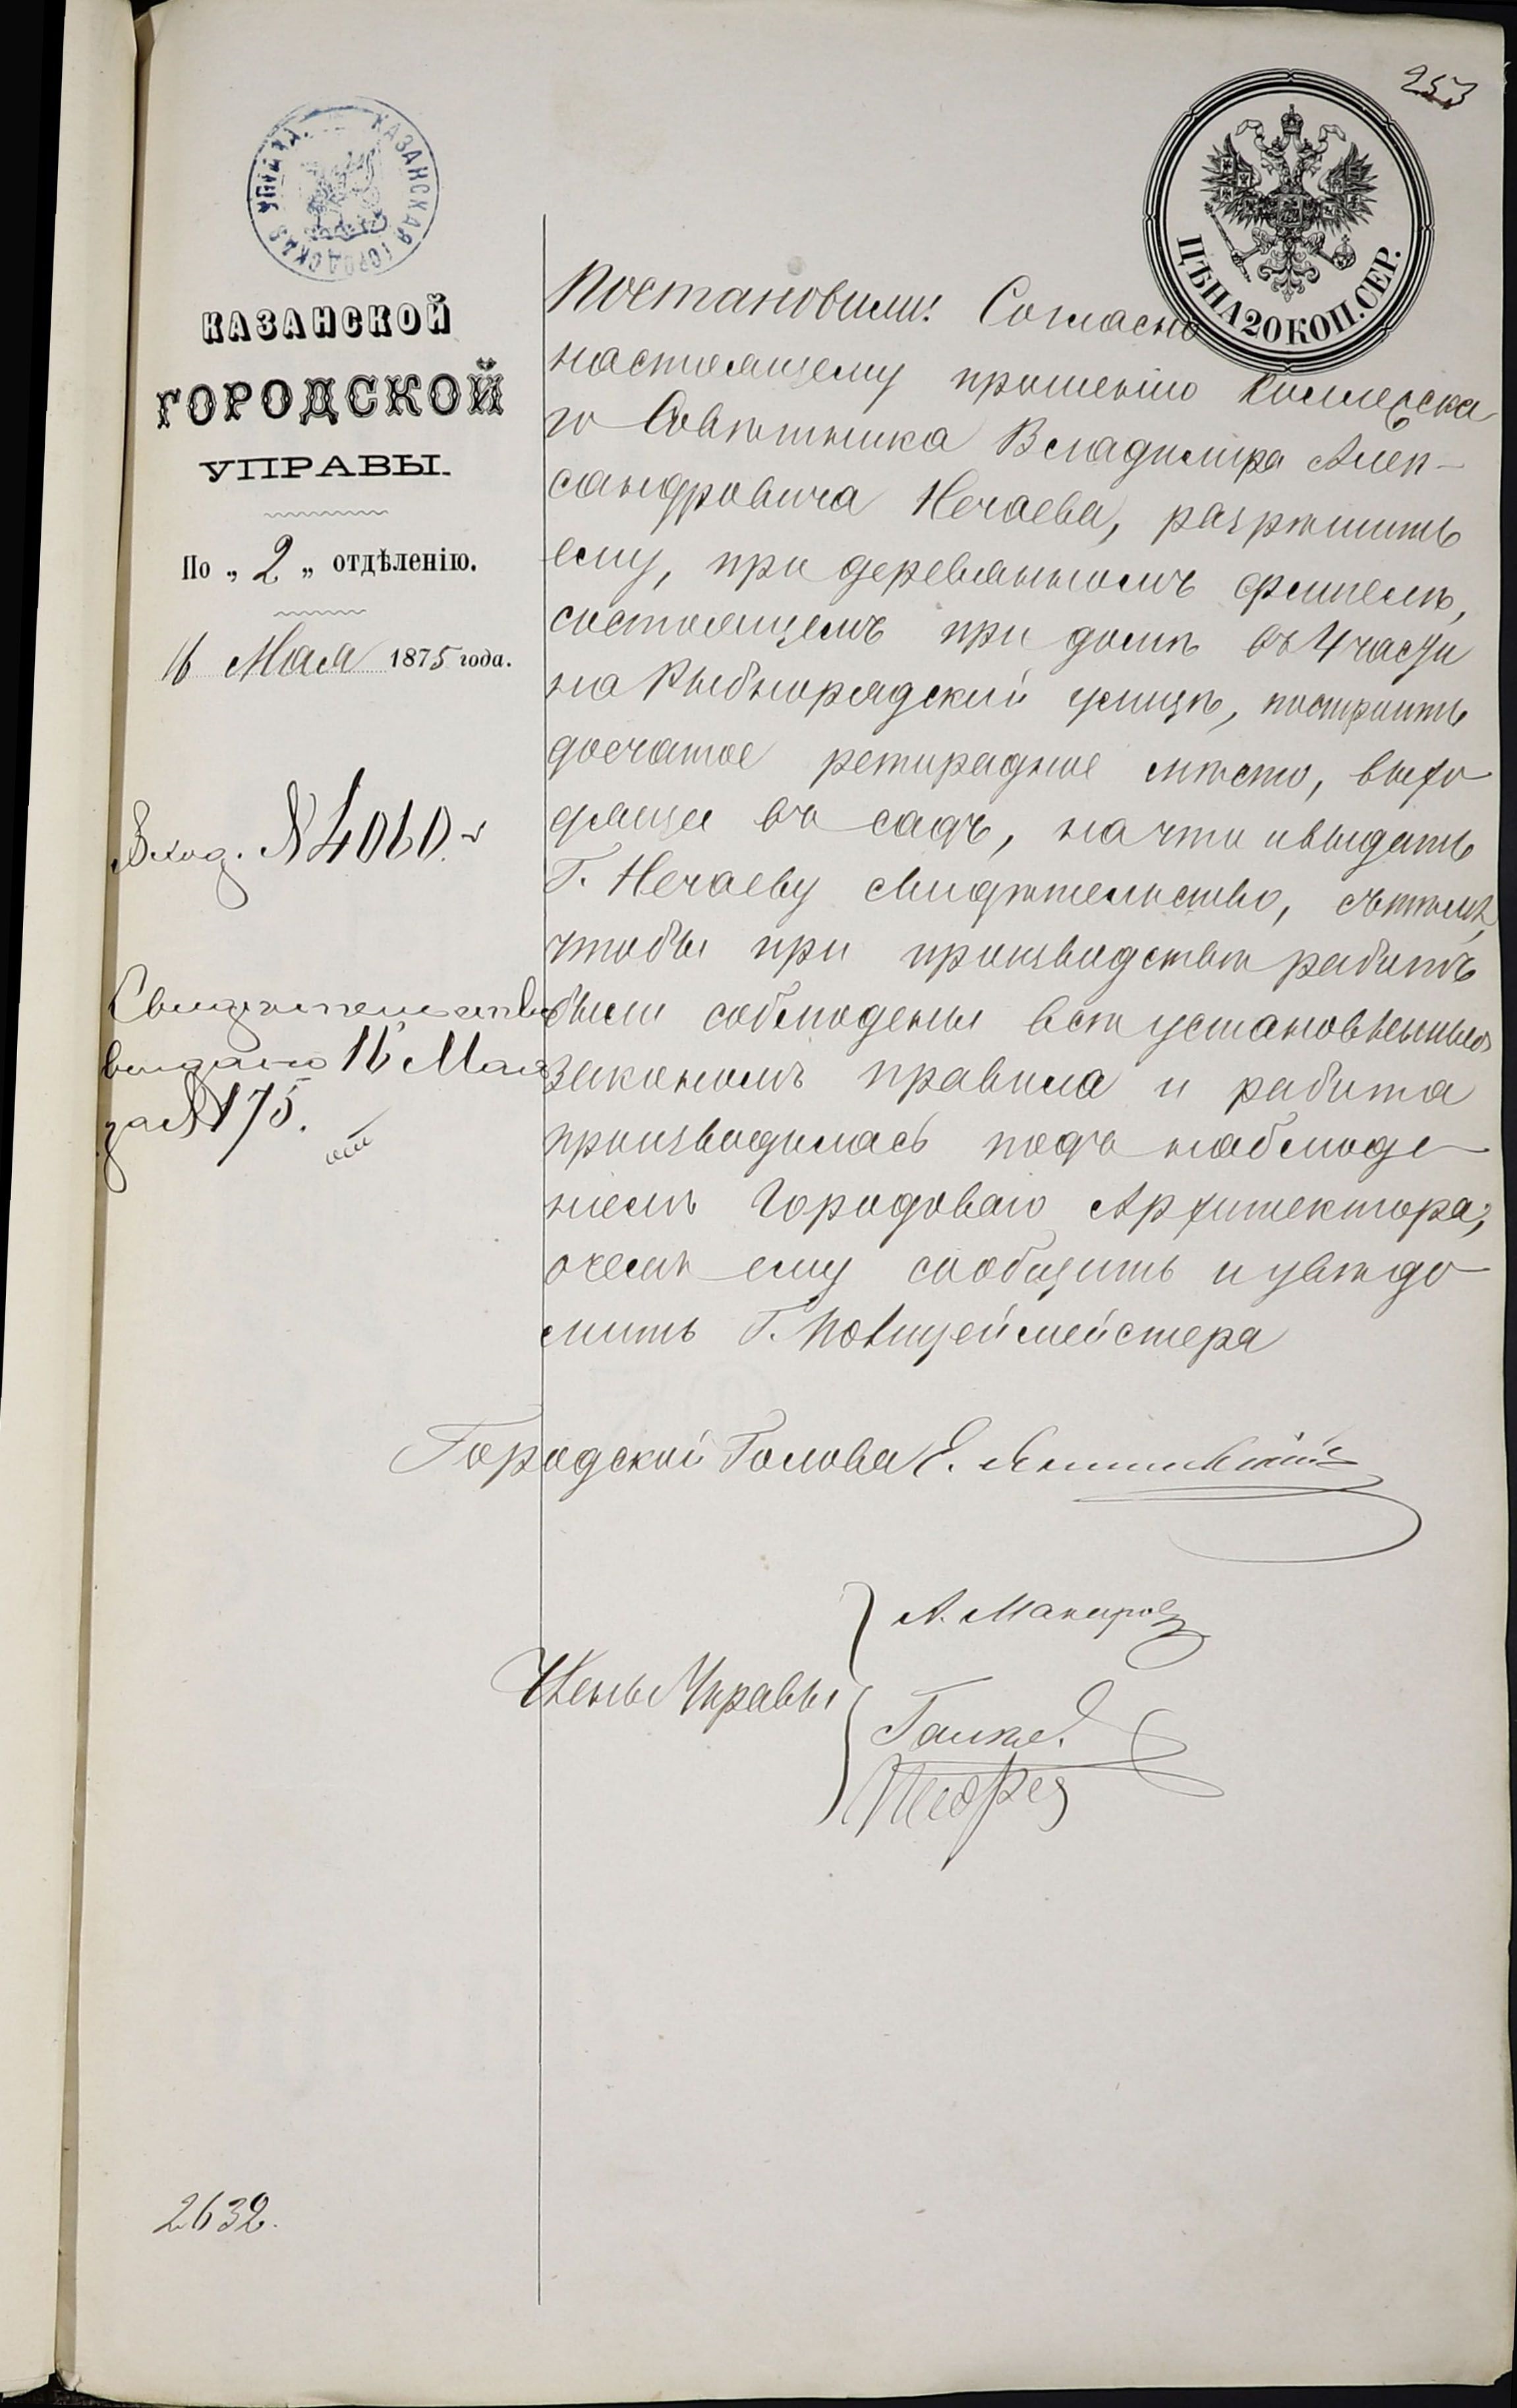 253
КАЗАНСКАЯ ГОРОДСКАЯ УПРАВА.
ЦѢНА 20 КОП. СЕР.
КАЗАНСКОЙ
ГОРОДСКОЙ
УПРАВЫ.
По „ 2 „ отдѣленію.
16 Мая 1875 года.
Вход. № 4060.
Свидѣтельство
выдано 16 Мая
за № 175.
Постановили: Согласно
настоящему прошенію Коллежска
го Совѣтника Владиміра Алек-
сандровича Нечаева, разрѣшить
ему, при деревянномъ флигелѣ,
состоящемъ при домѣ въ 4 части
на Рыбнорядской улицѣ, построить
досчатое ретирадное мѣсто, выхо
дящее въ садъ, на что и выдать
Г. Нечаеву свидѣтельство, съ тѣмъ,
чтобы при производствѣ работъ
были соблюдены всѣ установленныя
закономъ правила и работа
производилась подъ наблюде-
ніемъ Городоваго Архитектора;
о чемъ ему сообщить и увѣдо-
мить Г. Полицеймейстера
Городской Голова Е. Янишевскій
А. Макаров
Члены Управы
2632.